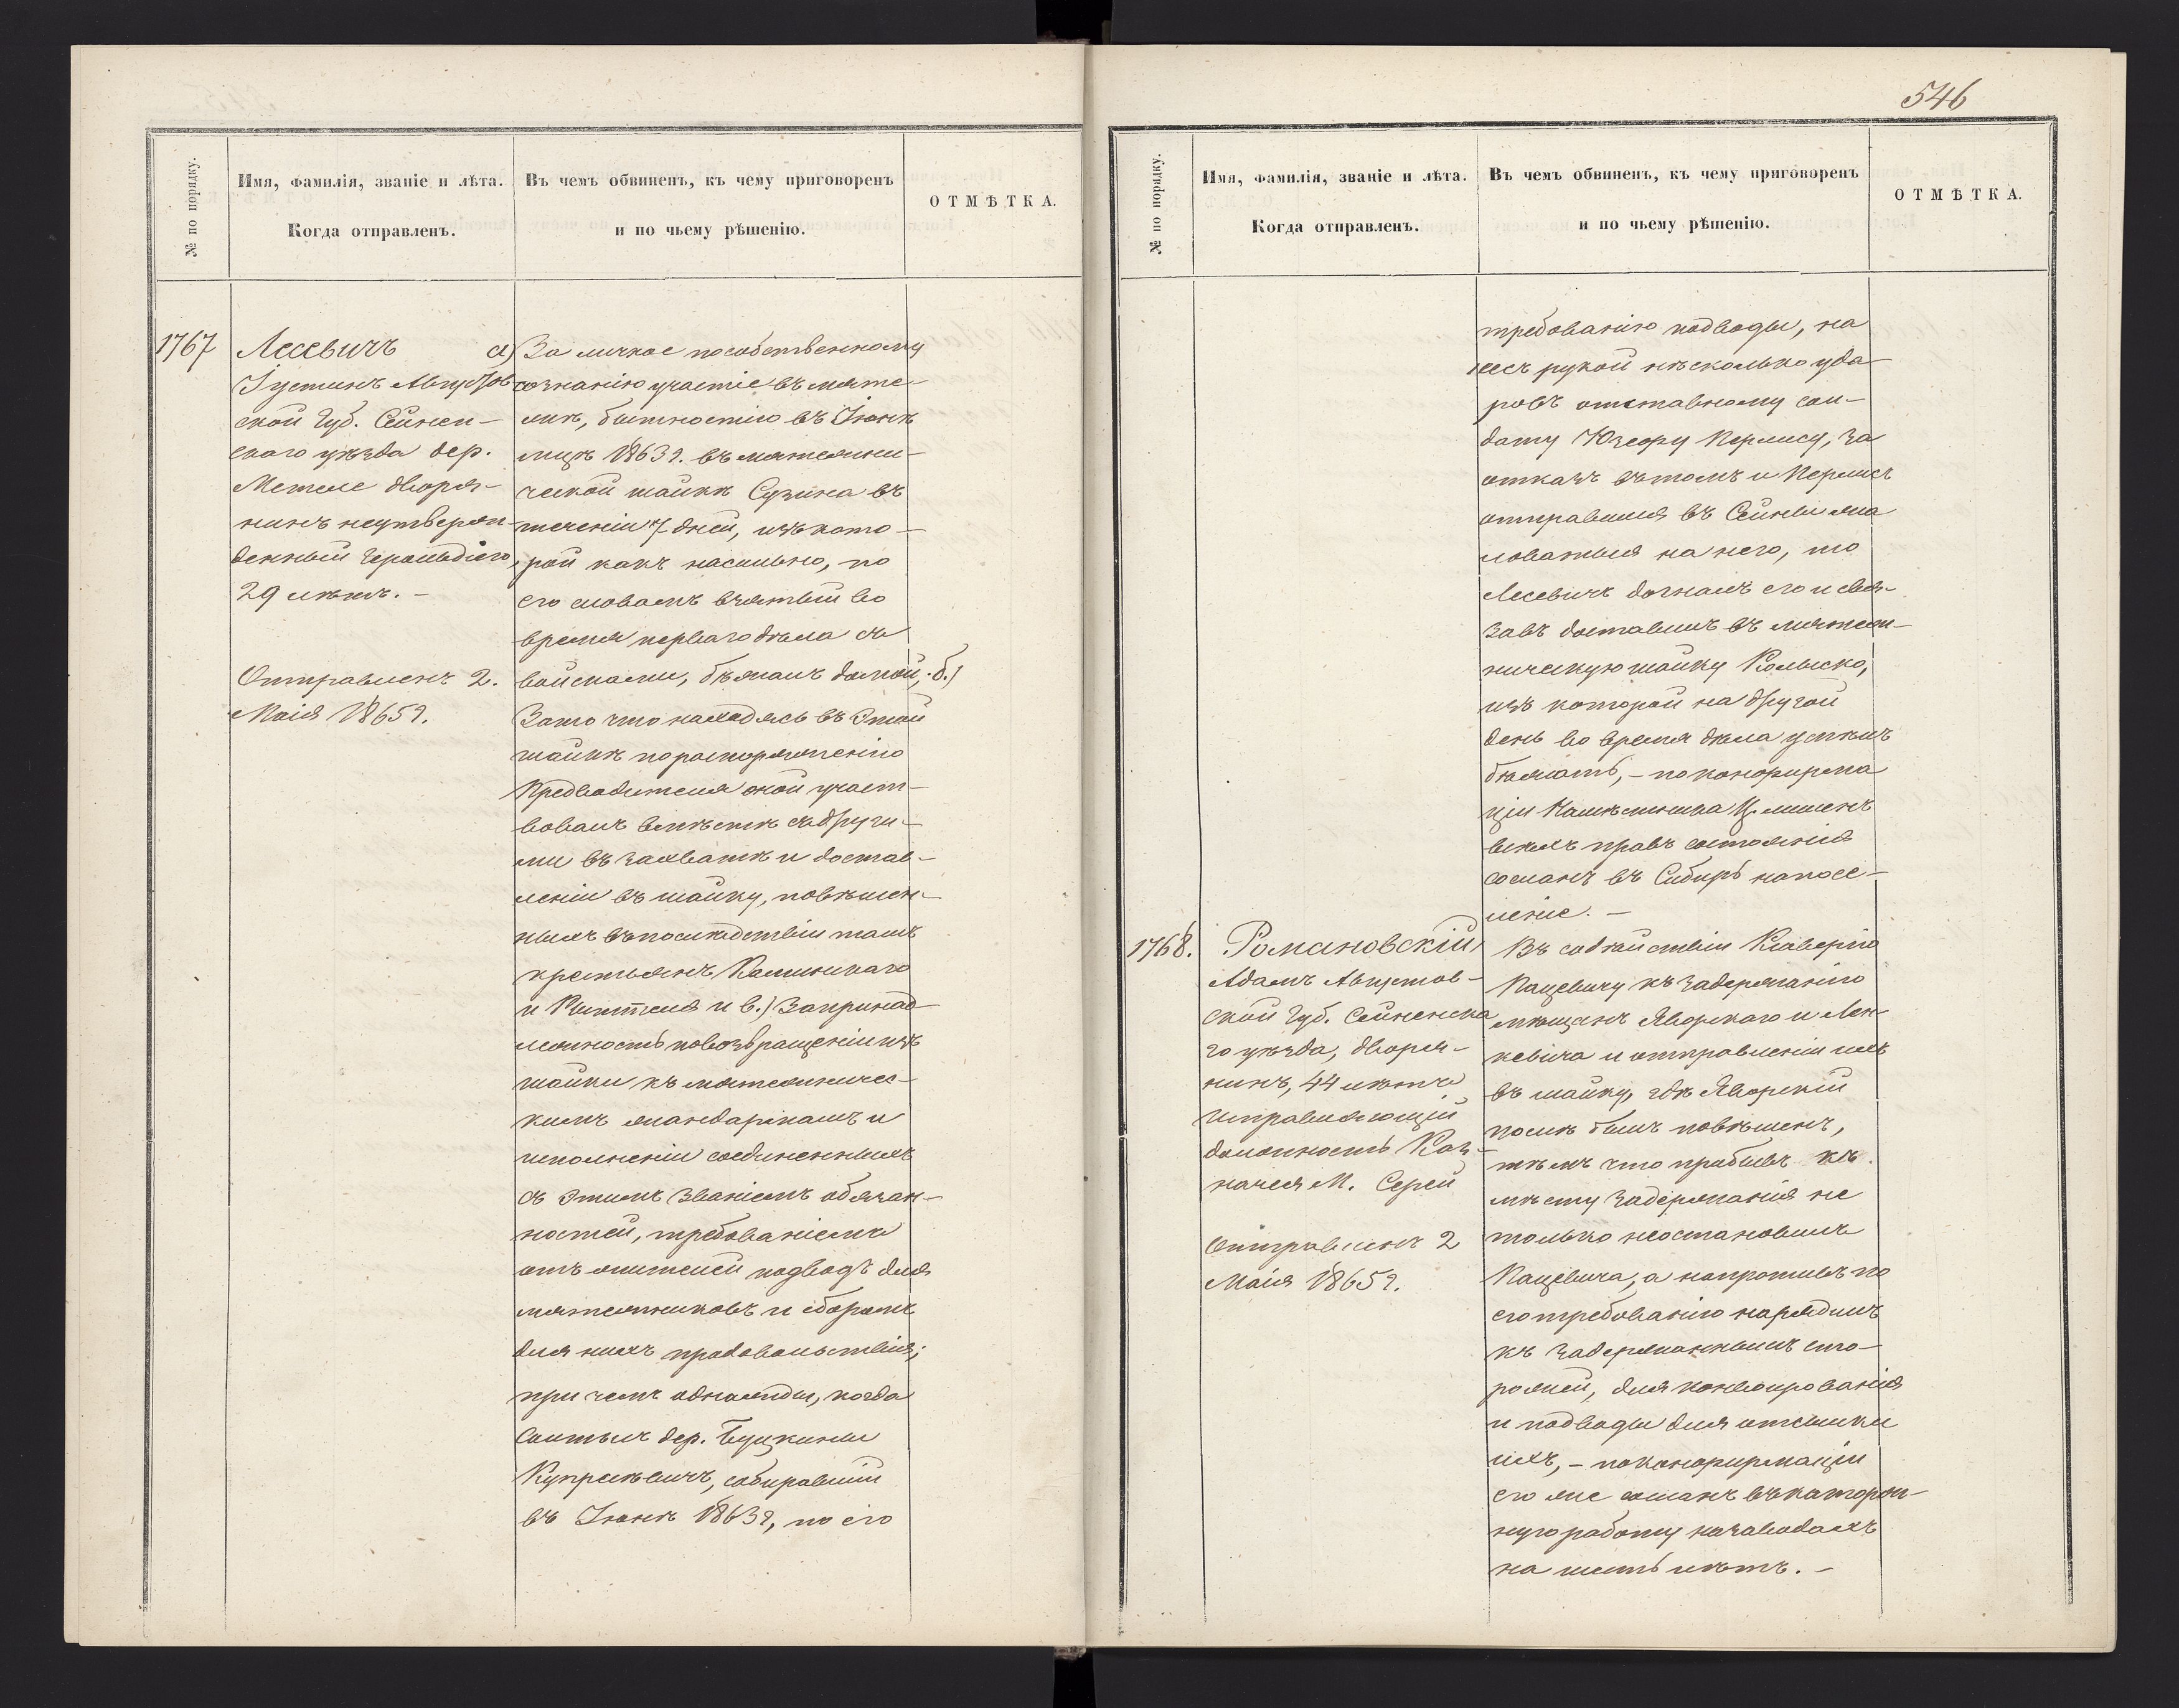 546
№ по порядку.
Имя, фамилія, званіе и лѣта.
Когда отправленъ.
Въ чемъ обвиненъ, къ чему приговоренъ
и по чьему рѣшенію.
ОТМѢТКА.
1767
Лесевичъ
Іустинъ Августов
ской Губ. Сейнен-
скаго уѣзда дер.
Метеле дворя-
нинъ неутверж-
денный Герольдіею,
29 лѣтъ. -
Отправленъ 2.
Маія 1865г.
а) За личное по собственному
сознанію участіе въ мяте-
жѣ, бытностію въ Іюнѣ
мцѣ 1863г. въ мятежни-
ческой шайкѣ Сузина въ
теченіи 7 дней, изъ кото-
рой какъ насильно, по
его словамъ взятый во
время перваго дѣла съ
войсками, бѣжалъ домой; б.)
За то что находясь въ этой
шайкѣ по распоряженію
Предводителя оной участ-
вовалъ вмѣстѣ съ други-
ми въ захватѣ и достав-
леніи въ шайку, повѣшен-
ныхъ въ послѣдствіи тамъ
крестьянъ
и в.) За принад-
лежность по возвращеніи изъ
шайки къ мятежничес-
кимъ жандармамъ и
исполненіи соединенныхъ
съ этимъ званіемъ обязан-
ностей, требованіемъ
отъ жителей подводъ для
мятежниковъ и сборомъ
для нихъ продовольствія;
при чемъ однажды, когда
Солтысъ дер. Буцкины
Купрелевичъ, собиравшій
въ Іюнѣ 1863г, по его
№ по порядку.
Имя, фамилія, званіе и лѣта.
Когда отправленъ.
Въ чемъ обвиненъ, къ чему приговоренъ
и по чьему рѣшенію.
ОТМѢТКА.
требованію подводы, на
несъ рукой нѣсколько уда-
ровъ отставному сол-
дату Юзефу Перлису, за
отказъ въ томъ и Перлисъ
отправился въ Сейны жа
ловаться на него, то
Лесевичъ догналъ его и свя-
завъ доставилъ въ мятеж-
ническую шайку Колыско,
изъ которой на другой
день во время дѣла успѣлъ
бѣжать, - по конфирма
ціи Намѣстника Ц. лишенъ
всѣхъ правъ состоянія
сосланъ въ Сибирь на посе-
леніе. -
1768.
Романовскій
Адамъ Августов-
ской Губ. Сейненска
го уѣзда, дворя-
нинъ, 44 лѣтъ
исправляющій
должность Каз-
начея М. Сереи
Отправленъ 2
Маія 1865г.
Въ содѣйствіи Ксаверію
Пацевичу къ задержанію
мѣщанъ Яворскаго и Лен-
кевича и отправленіи ихъ
въ шайку, гдѣ Яворскій
послѣ былъ повѣшенъ,
тѣмъ что прибывъ къ
мѣсту задержанія не
только неостановилъ
Пацевича, а напротивъ по
его требованію нарядилъ
къ задержаннымъ сто-
рожей, для конвоированія
и подводы для отсылки
ихъ, - по конфирмаціи
его же сосланъ въ каторж-
ную работу на заводахъ
на шесть лѣтъ. -